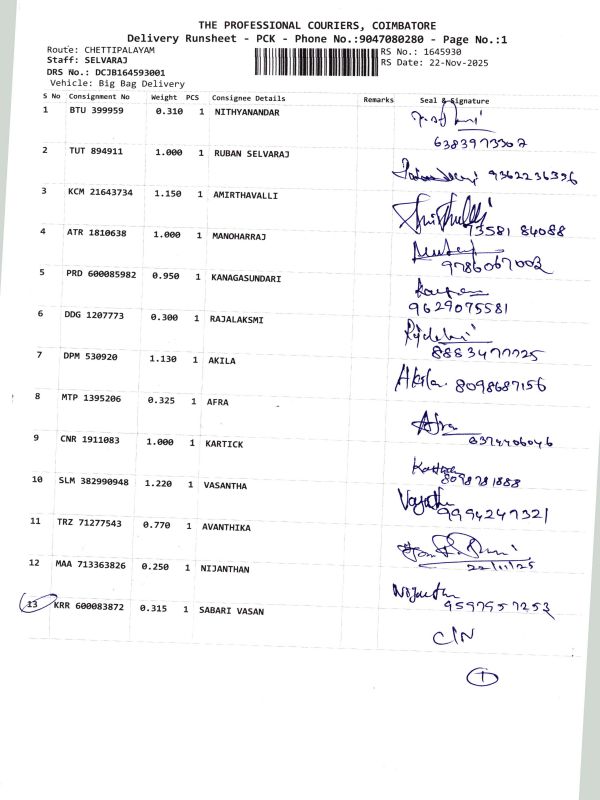 THE PROFESSIONAL COURIERS, COIMBATORE
Delivery Runsheet - PCK - Phone No.:9047080280 - Page No.:1
Route: CHETTIPALAYAM
Staff: SELVARAJ
RS No.: 1645930
DRS No.: DCJB164593001
RS Date: 22-Nov-2025
Vehicle: Big Bag Delivery
S No Consignment No Weight PCS Consignee Details Remarks Seal & Signature
1 BTU 399959 0.310 1 NITHYANANDAR
6383973307
2 TUT 894911 1.000 1 RUBAN SELVARAJ
9362236396
3 KCM 21643734 1.150 1 AMIRTHAVALLI
73581 84088
4 ATR 1810638 1.000 1 MANOHARRAJ
9786067003
5 PRD 600085982 0.950 1 KANAGASUNDARI
9629075581
6 DDG 1207773 0.300 1 RAJALAKSMI
8883477725
7 DPM 530920 1.130 1 AKILA Akila 8098687156
8 MTP 1395206 0.325 1 AFRA Afra
6374406046
9 CNR 1911083 1.000 1 KARTICK
8098781888
10 SLM 382990948 1.220 1 VASANTHA
9994247321
11 TRZ 71277543 0.770 1 AVANTHIKA
22/11/25
12 MAA 713363826 0.250 1 NIJANTHAN
9597957253
13 KRR 600083872 0.315 1 SABARI VASAN
C/N
1